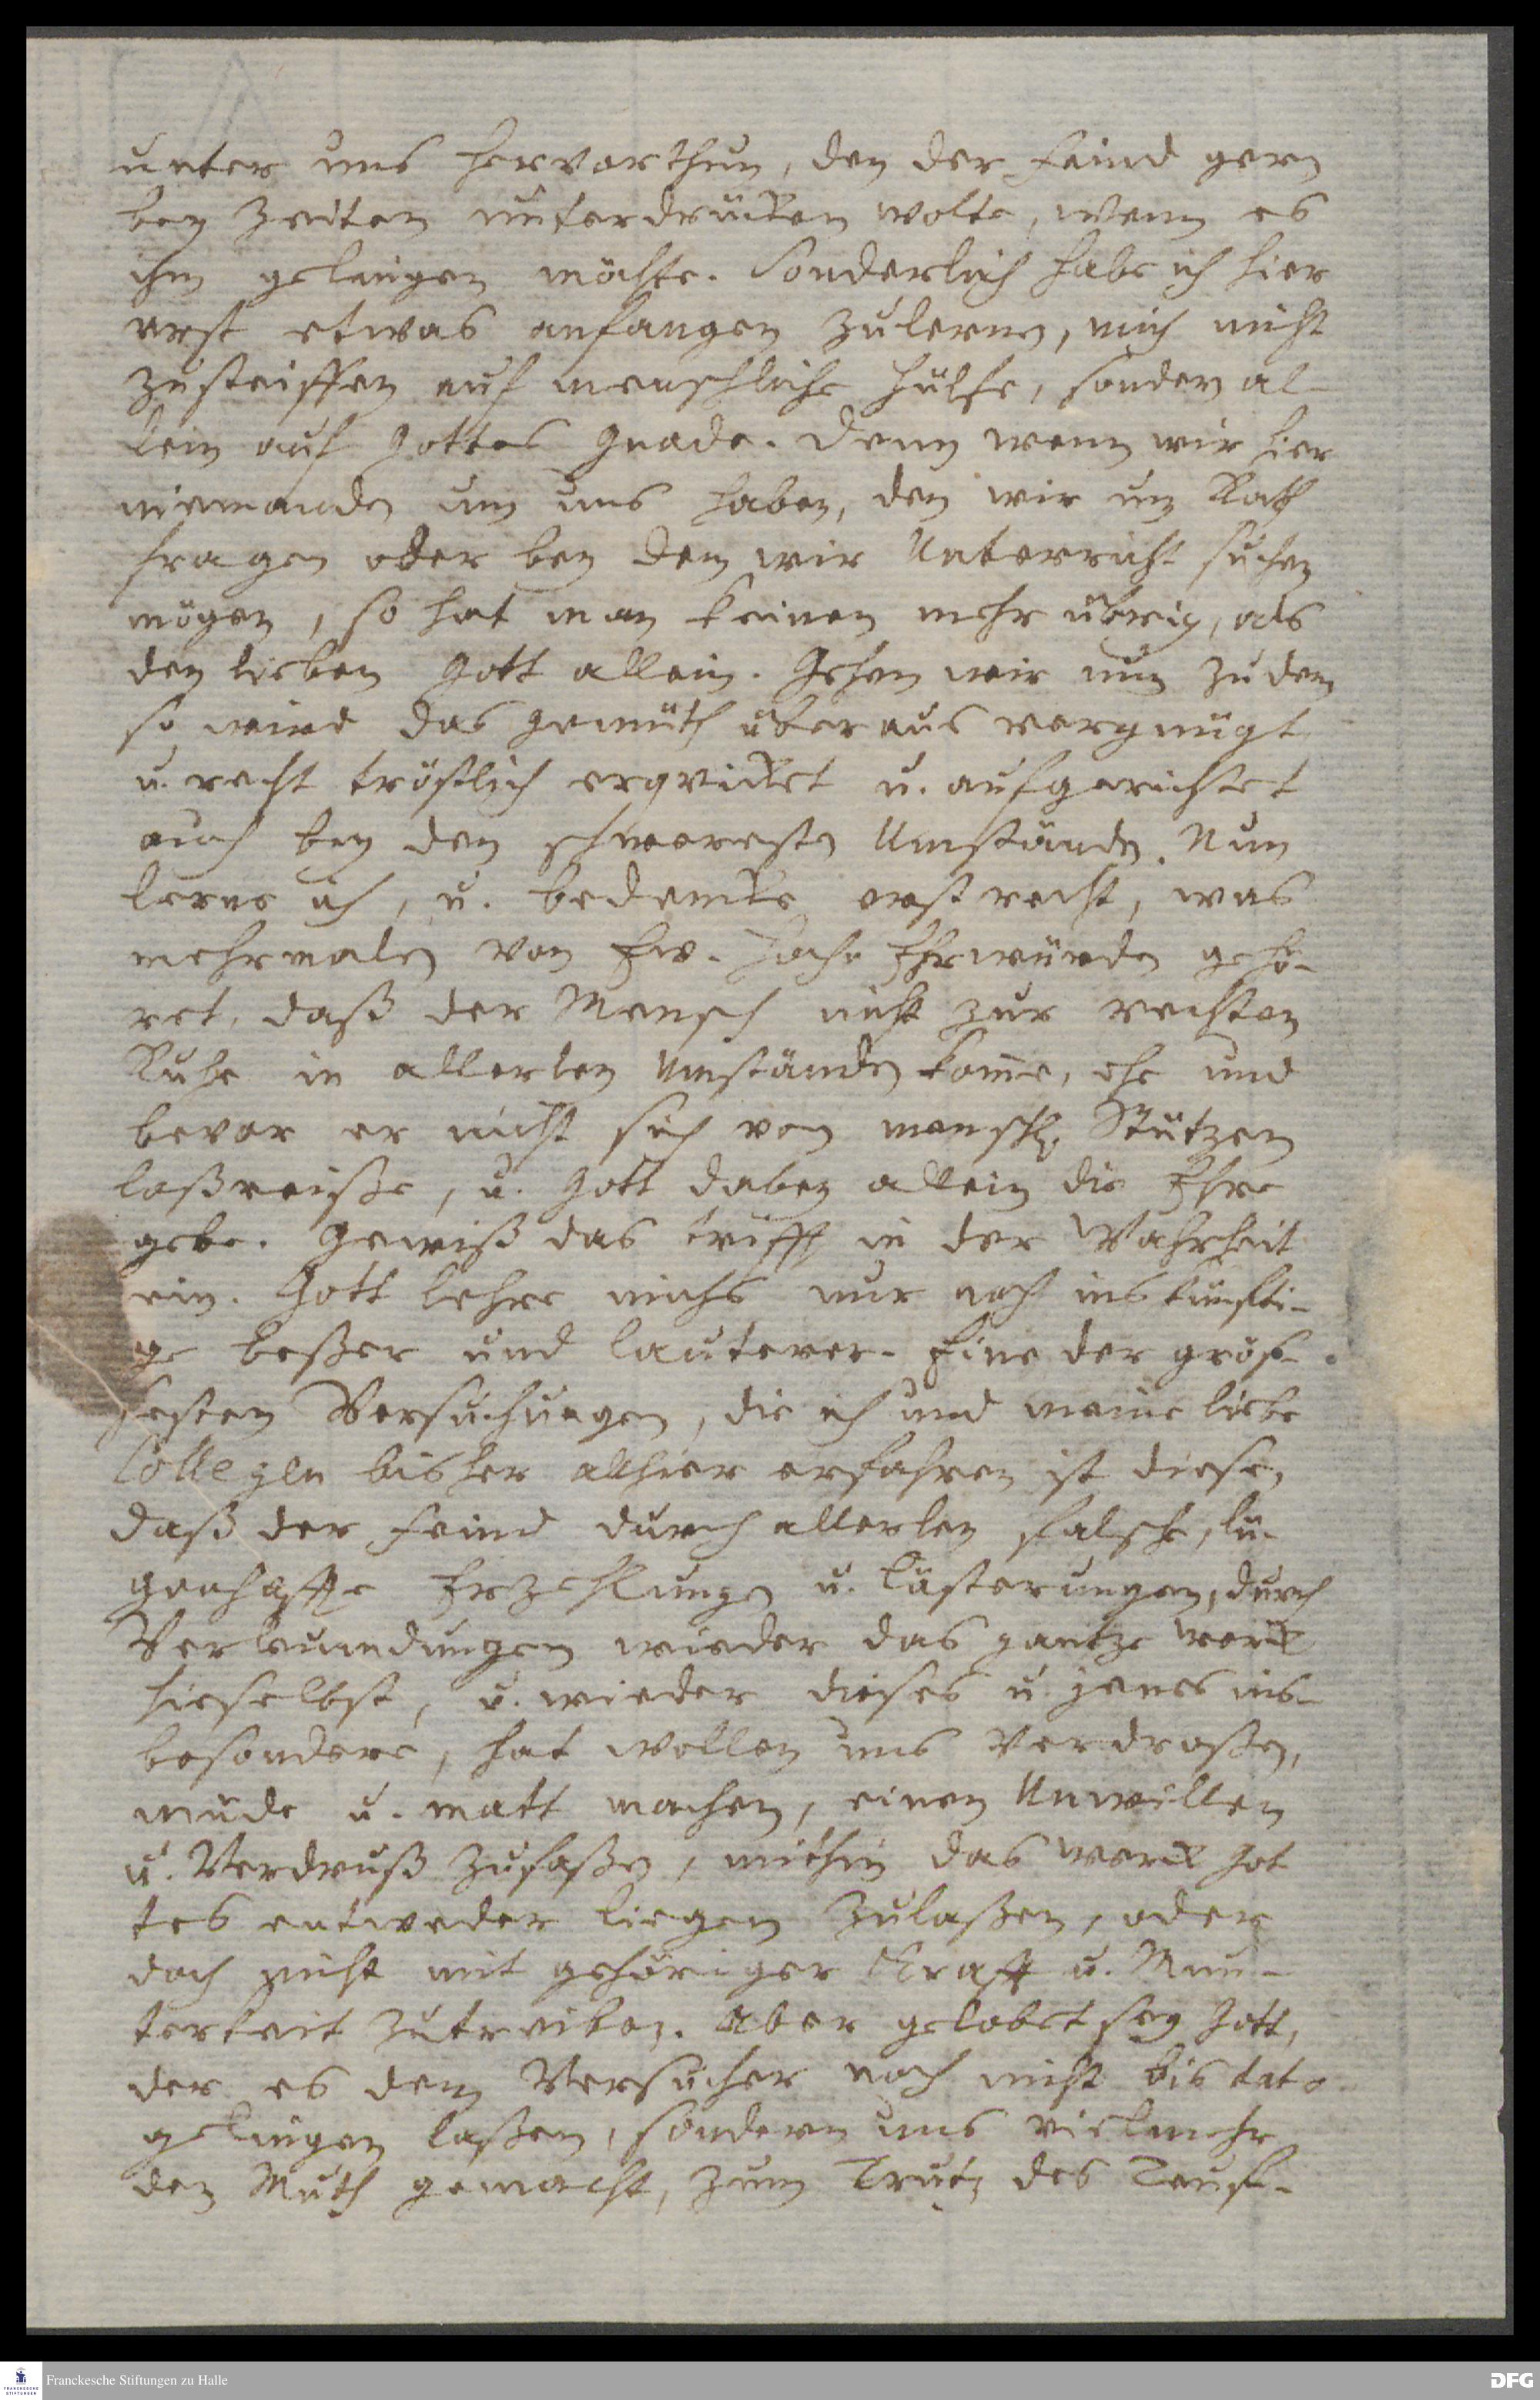 unter uns hervorthun, den der Feind gern
bey Zeiten unterdrücken wolte, wenn es
ihm gelingen möchte. Sonderlich habe ich hier
erst etwas anfangen zulernen, mich nicht
zusteiffen auf menschliche Hülfe, sondern al-
lein auf Gottes Gnade. Denn wenn wir hier
niemanden um uns haben, den wir um Rath
fragen oder bey dem wir Unterricht suchen
mögen, so hat man keinen mehr übrig, als
den lieben Gott allein. Gehen wir nun zu dem
so wird das Gemüth überaus vergnügt
u. recht tröstlich erqvicket u. aufgerichtet
auch bey den schweresten Umständen. Nun
lerne ich, u. bedencke erst recht, was
mehrmalen von Ew. Hoch Ehrwürden gehö-
ret, daß der Mensch nicht zur rechten
Ruhe in allerley Umständen komme, ehe und
bevor er nicht sich von menschl. Stützen
loßreiße, u. Gott dabey allein die Ehre
gebe. Gewiß das trifft in der Wahrheit
ein. Gott lehre michs nur noch ins künfti-
ge beßer und lauterer. Eine der grös-
sesten Versuchungen, die ich und meine liebe
Collegen bisher allhier erfahren ist diese,
daß der Feind durch allerley falsche, lü-
genhaffte Erzehlungen u. Lästerungen, durch
Verleumdungen wieder das gantze werck
hieselbst, u. wieder dieses u. jenes ins-
besondere, hat wollen uns verdroßen,
müde u. matt machen, einen Unwillen
u. Verdruß zufaßen, mithin das werck Got
tes entweder liegen zulaßen, oder
doch nicht mit gehöriger Krafft u. Mun-
terkeit zutreiben. Aber gelobet sey Gott,
der es dem Versucher noch nicht bis dato
gelingen laßen, sondern uns vielmehr
den Muth gemacht, zum Trutz des Teuf-
Franckesche Stiftungen zu Halle
DFG